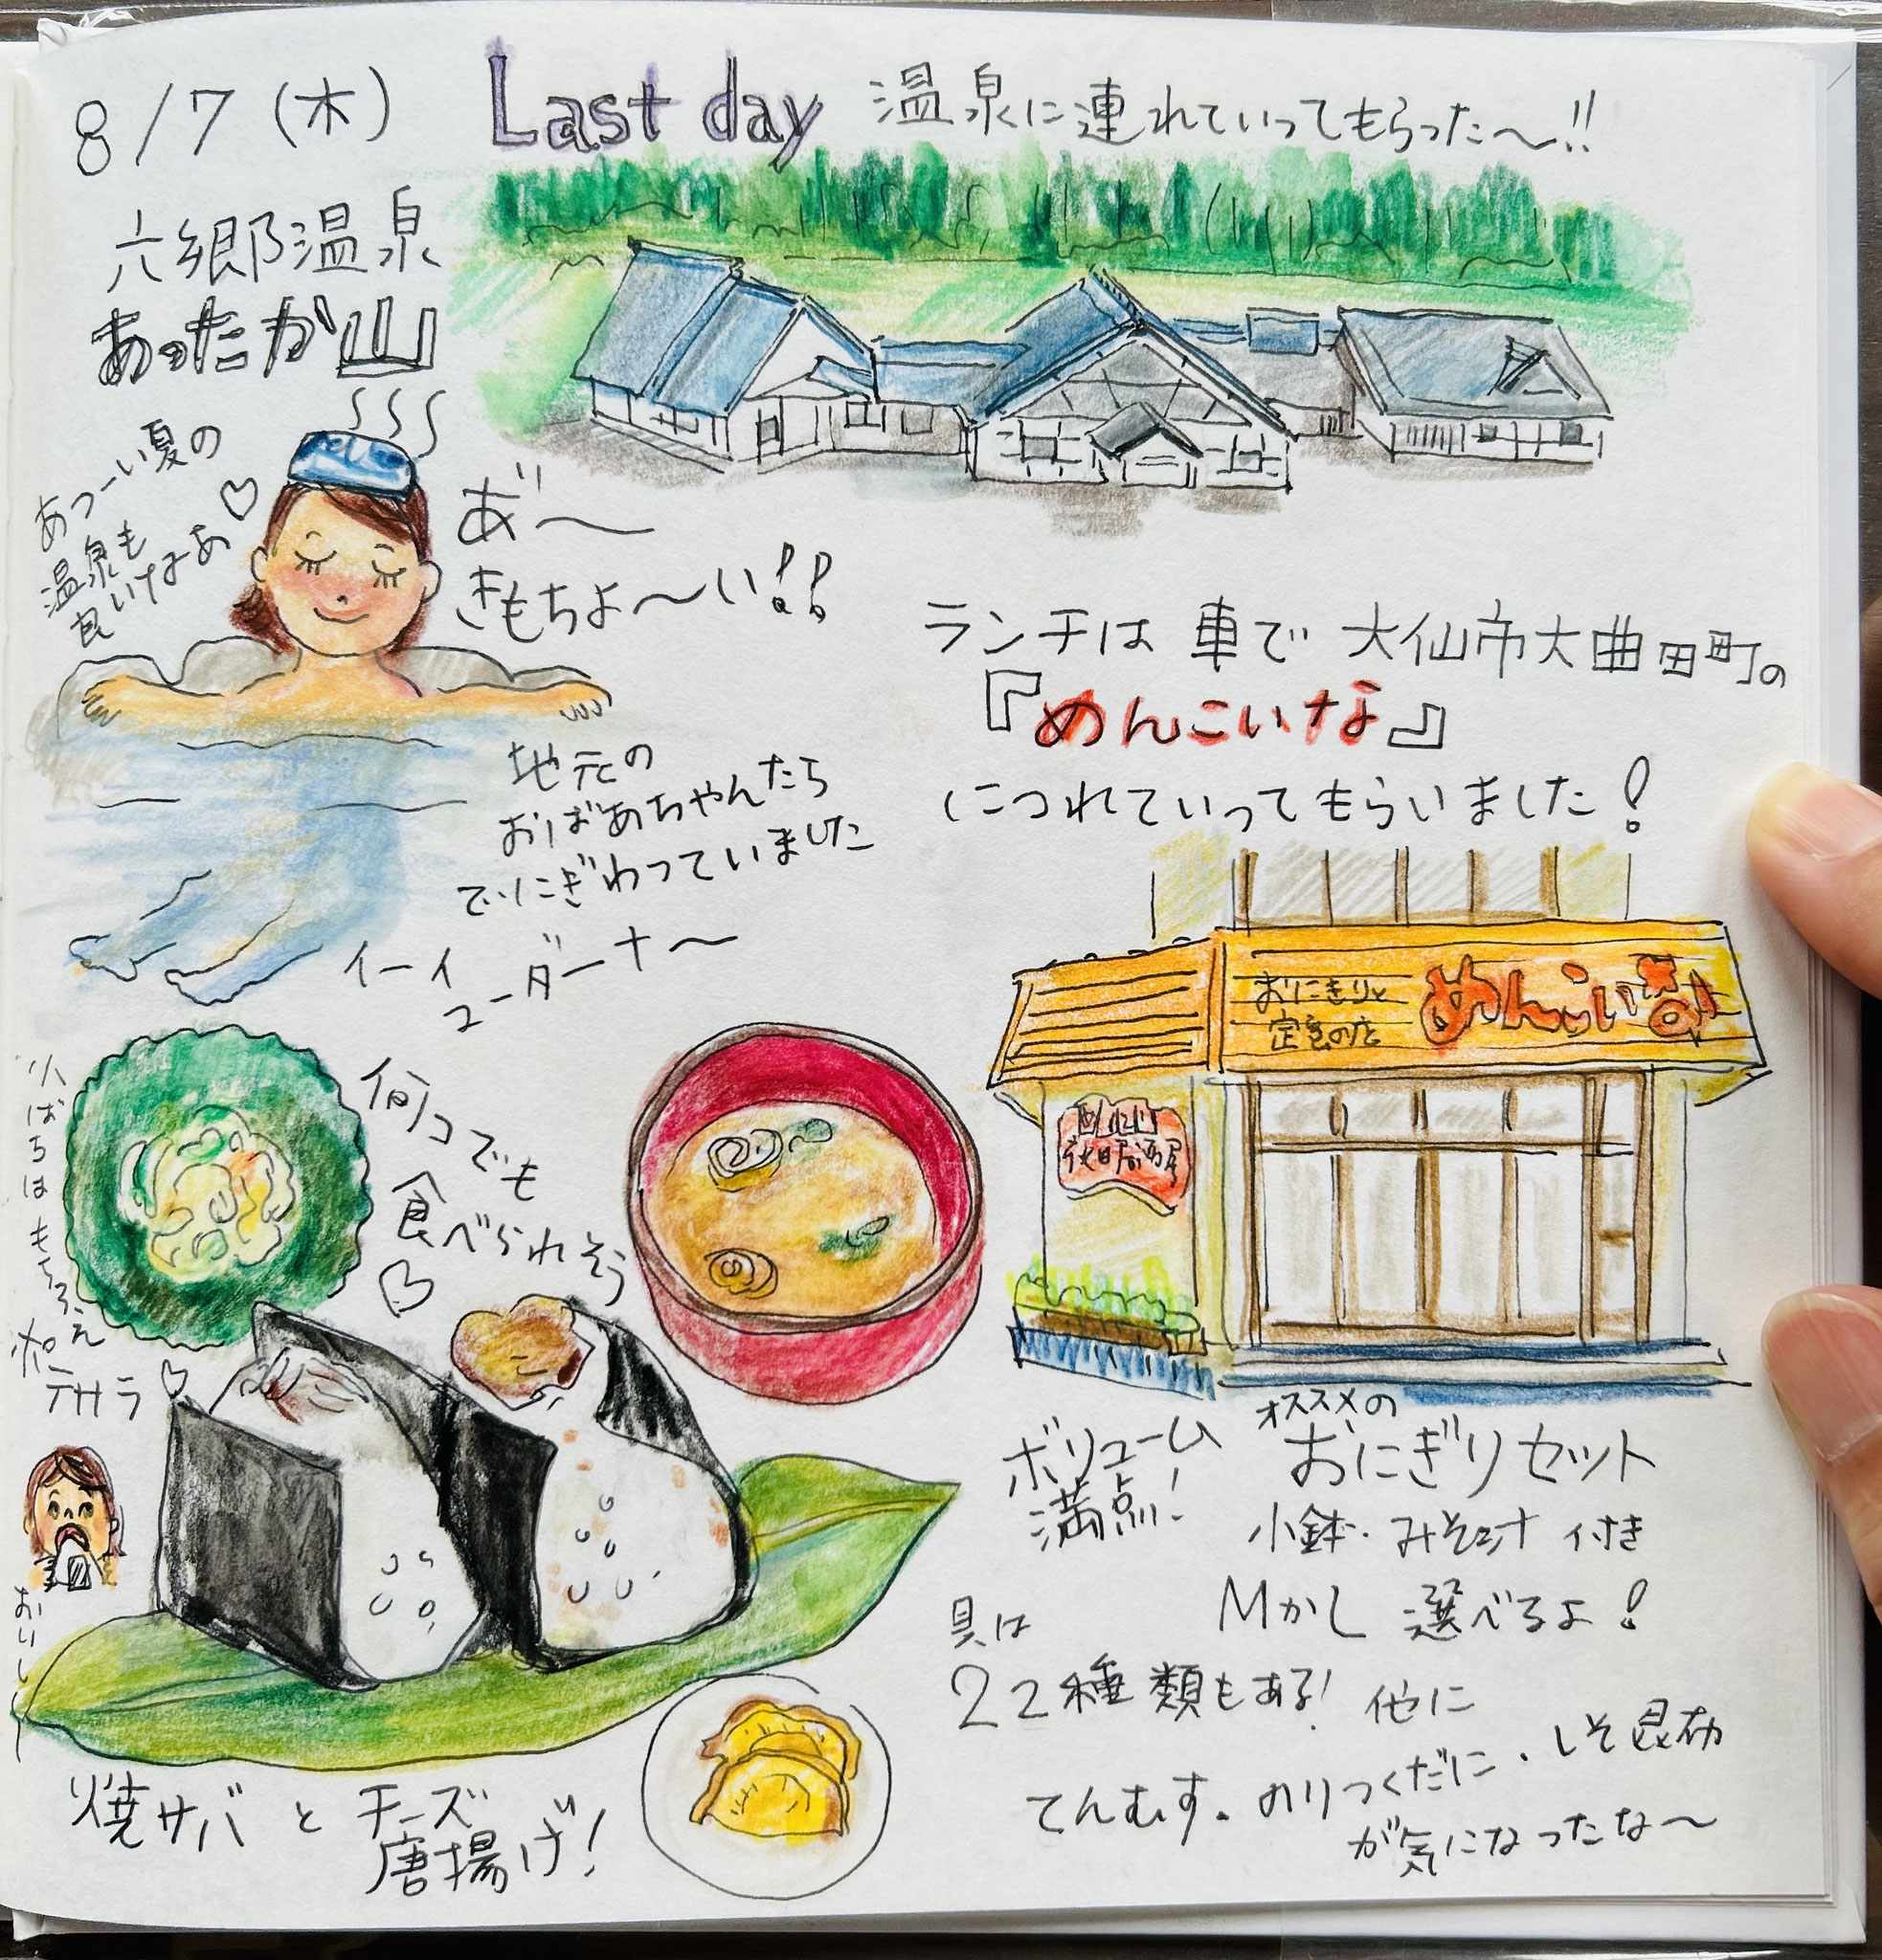 8/7(木)
Last day
温泉に連れていってもらった〜!!
六郷温泉
あったか山
あつーい夏の
温泉も
良いなあ♡
あ゛〜
きもちよ〜い!!
地元の
おばあちゃんたち
でにぎわっていました
イーイ
ユーダーナ〜
ランチは 車で 大仙市大曲田町の
『めんこいな』
につれていってもらいました!
おにぎりと
定食の店
めんこいな
秋田居酒屋
小ばちは もちろん
ポテサラ♡
何コでも
食べられそう
♡
おいしー
焼サバ と チーズ
唐揚げ!
ボリューム
満点!
オススメの
おにぎりセット
小鉢・みそ汁 付き
Mかし 選べるよ!
具は
22種類もある! 他に
てんむす。のりつくだに・しそ昆布
が気になったな〜